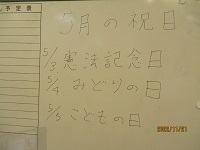 予定表
5月の祝日
5/3 憲法記念日
5/4 みどりの日
5/5 こどもの日